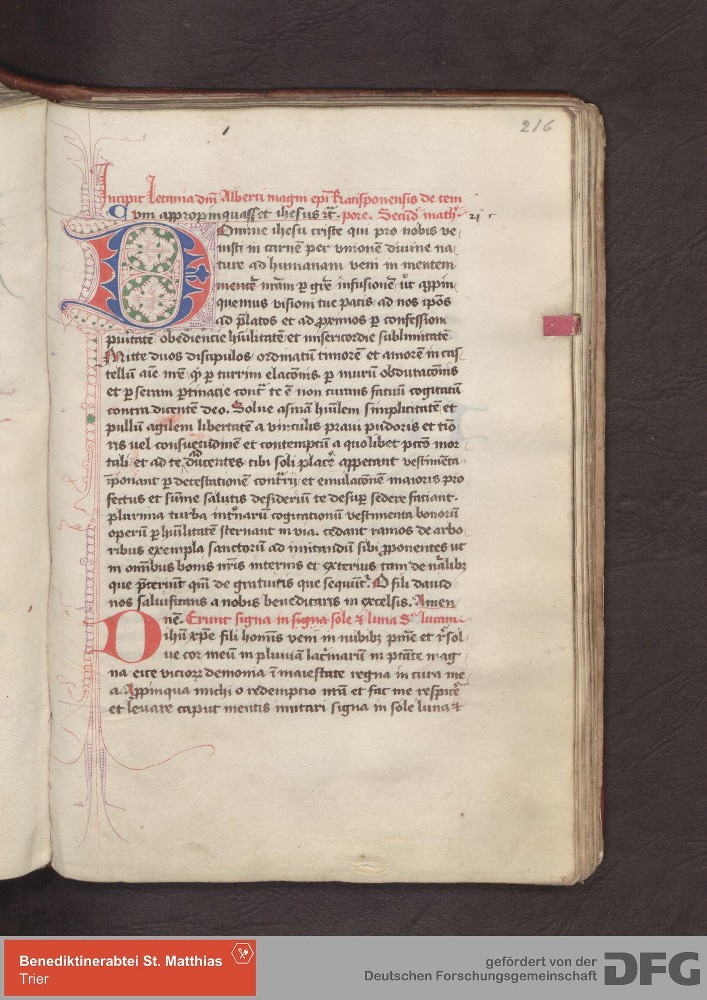 216
Incipit Letania dni Alberti magni epi Ratisponensis de tem
Cum appropinquasset ihesus &c. pore. Secund math. xxi c
Domine ihesu criste qui pro nobis ve
nisti in carnem per unionem divine na
ture ad humanam veni in mentem
per infusionem
quemus visioni tue pacis ad nos ipos
ad platos et ad proximos p confessioni
puritate obediencie huilitate et misericordie sublimitate
Mitte duos discipulos ordinatum timore et amore in cas
tellu
et p seram
contra dicente deo. Solue asinam huilem simplicitate et
pullu agilem libertate a vinculis praui pudoris et tio
ris vel consuetudine et contemptu a quolibet pcto mor
tali et ad te adducentes tibi soli placere appetant vestimenta
iponant p detestatione et emulacone maioris pro
fectus et sume salutis desideriu te desup sedere faciant.
plurima turba cogitationu vestimenta bonoru
operu p huilitate sternant in via. cedant ramos de arbo
ribus exempla sanctoru ad imitandu sibi pponentes ut
in omibus bonis nris internis et exterius tam de nalibz
que pterint qm de gratuitis que sequunt. O fili dauid
nos saluificans a nobis benedicaris in excelsis. Amen
ne. Erunt signa in signa sole & luna S lucam
Dne ihu xpe fili hominis veni in nubibz pnie et rsol
ue cor meu in pluuiam lacrimaru in ptate mag
na eice vicioru demonia i maiestate regna in cura me
a. Appinqua michi o redemptio mea et fac me respicere
et leuare caput mentis mutari signa in sole luna &
Benediktinerabtei St. Matthias
Trier
gefördert von der
Deutschen Forschungsgemeinschaft
DFG